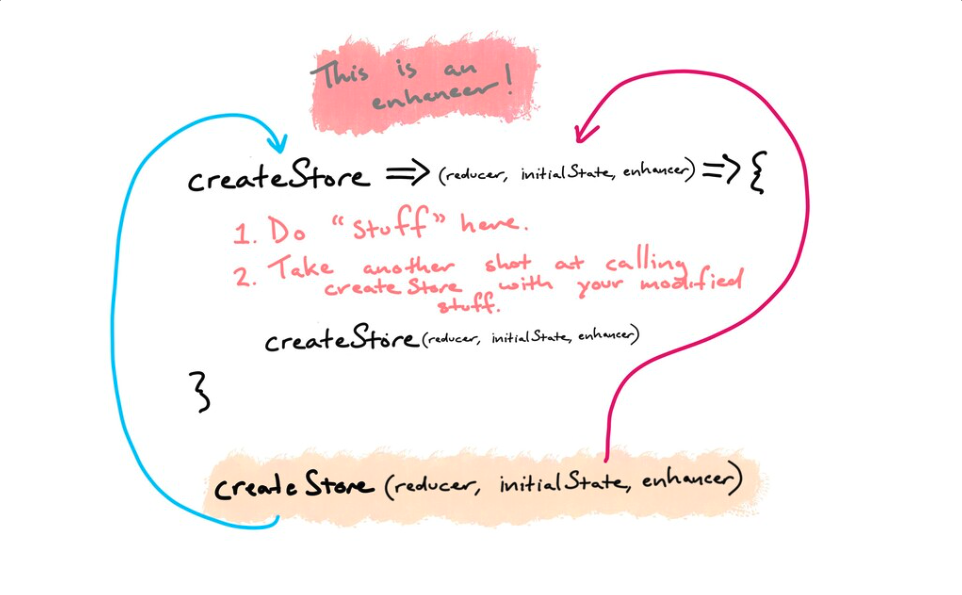 This is an
enhancer!
createStore => (reducer, initialState, enhancer) => {
1. Do "stuff" here.
2. Take another shot at calling
createStore with your modified
stuff.
createStore(reducer, initialState, enhancer)
}
createStore (reducer, initialState, enhancer)